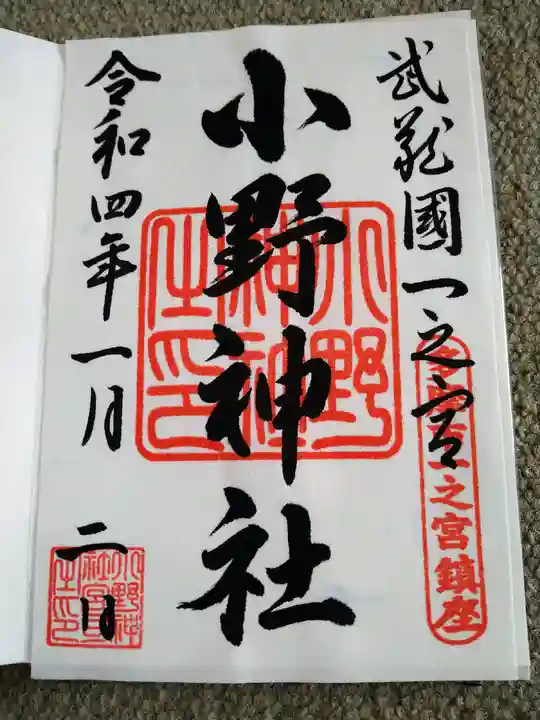 武蔵國一之宮
一之宮鎮座
小野神社
小野神社之印
令和四年一月
二日
小野神社宮司之印